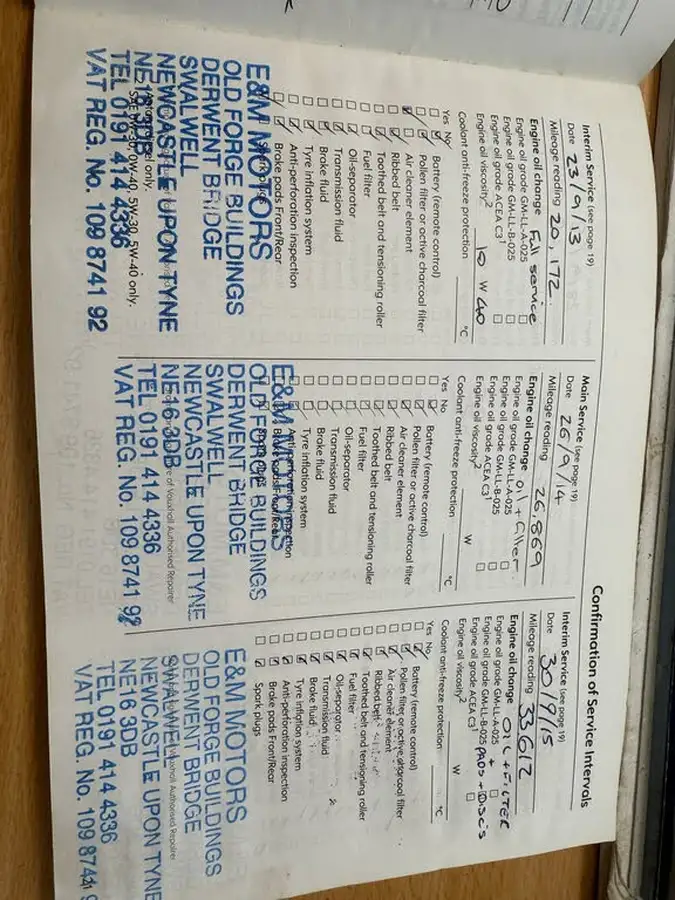 Confirmation of Service Intervals
Interim Service (see page 19)
Date 23/9/13
Mileage reading 20,172
Engine oil change Full service
Engine oil grade GM-LL-A-025
Engine oil grade GM-LL-B-025
Engine oil grade ACEA C3¹
Engine oil viscosity² 10 W 40
Coolant anti-freeze protection °C
Yes No
Battery (remote control)
Pollen filter or active charcoal filter
Air cleaner element
Ribbed belt
Toothed belt and tensioning roller
Fuel filter
Oil-separator
Transmission fluid
Brake fluid
Tyre inflation system
Anti-perforation inspection
Brake pads Front/Rear
E&M MOTORS
OLD FORGE BUILDINGS
DERWENT BRIDGE
SWALWELL
NEWCASTLE UPON TYNE
NE16 3DB
TEL 0191 414 4336
VAT REG. No. 109 8741 92
Main Service (see page 19)
Date 26/9/14
Mileage reading 26.869
Engine oil change oil + filter.
Engine oil grade GM-LL-A-025
Engine oil grade GM-LL-B-025
Engine oil grade ACEA C3¹
Engine oil viscosity² W
Coolant anti-freeze protection °C
Yes No
Battery (remote control)
Pollen filter or active charcoal filter
Air cleaner element
Ribbed belt
Toothed belt and tensioning roller
Fuel filter
Oil-separator
Transmission fluid
Brake fluid
Tyre inflation system
Anti-perforation inspection
Brake pads Front/Rear
E&M MOTORS
OLD FORGE BUILDINGS
DERWENT BRIDGE
SWALWELL
NEWCASTLE UPON TYNE
NE16 3DB
TEL 0191 414 4336
VAT REG. No. 109 8741 92
Interim Service (see page 19)
Date 30/9/15
Mileage reading 33,612
Engine oil change OIL + FILTER
Engine oil grade GM-LL-A-025 +
Engine oil grade GM-LL-B-025 PADS + DISC'S
Engine oil grade ACEA C3¹
Engine oil viscosity² W
Coolant anti-freeze protection °C
Yes No
Battery (remote control)
Pollen filter or active charcoal filter
Air cleaner element
Ribbed belt
Toothed belt and tensioning roller
Fuel filter
Oil-separator
Transmission fluid
Brake fluid
Tyre inflation system
Anti-perforation inspection
Brake pads Front/Rear
Spark plugs
E&M MOTORS
OLD FORGE BUILDINGS
DERWENT BRIDGE
SWALWELL
NEWCASTLE UPON TYNE
NE16 3DB
TEL 0191 414 4336
VAT REG. No. 109 8741 9